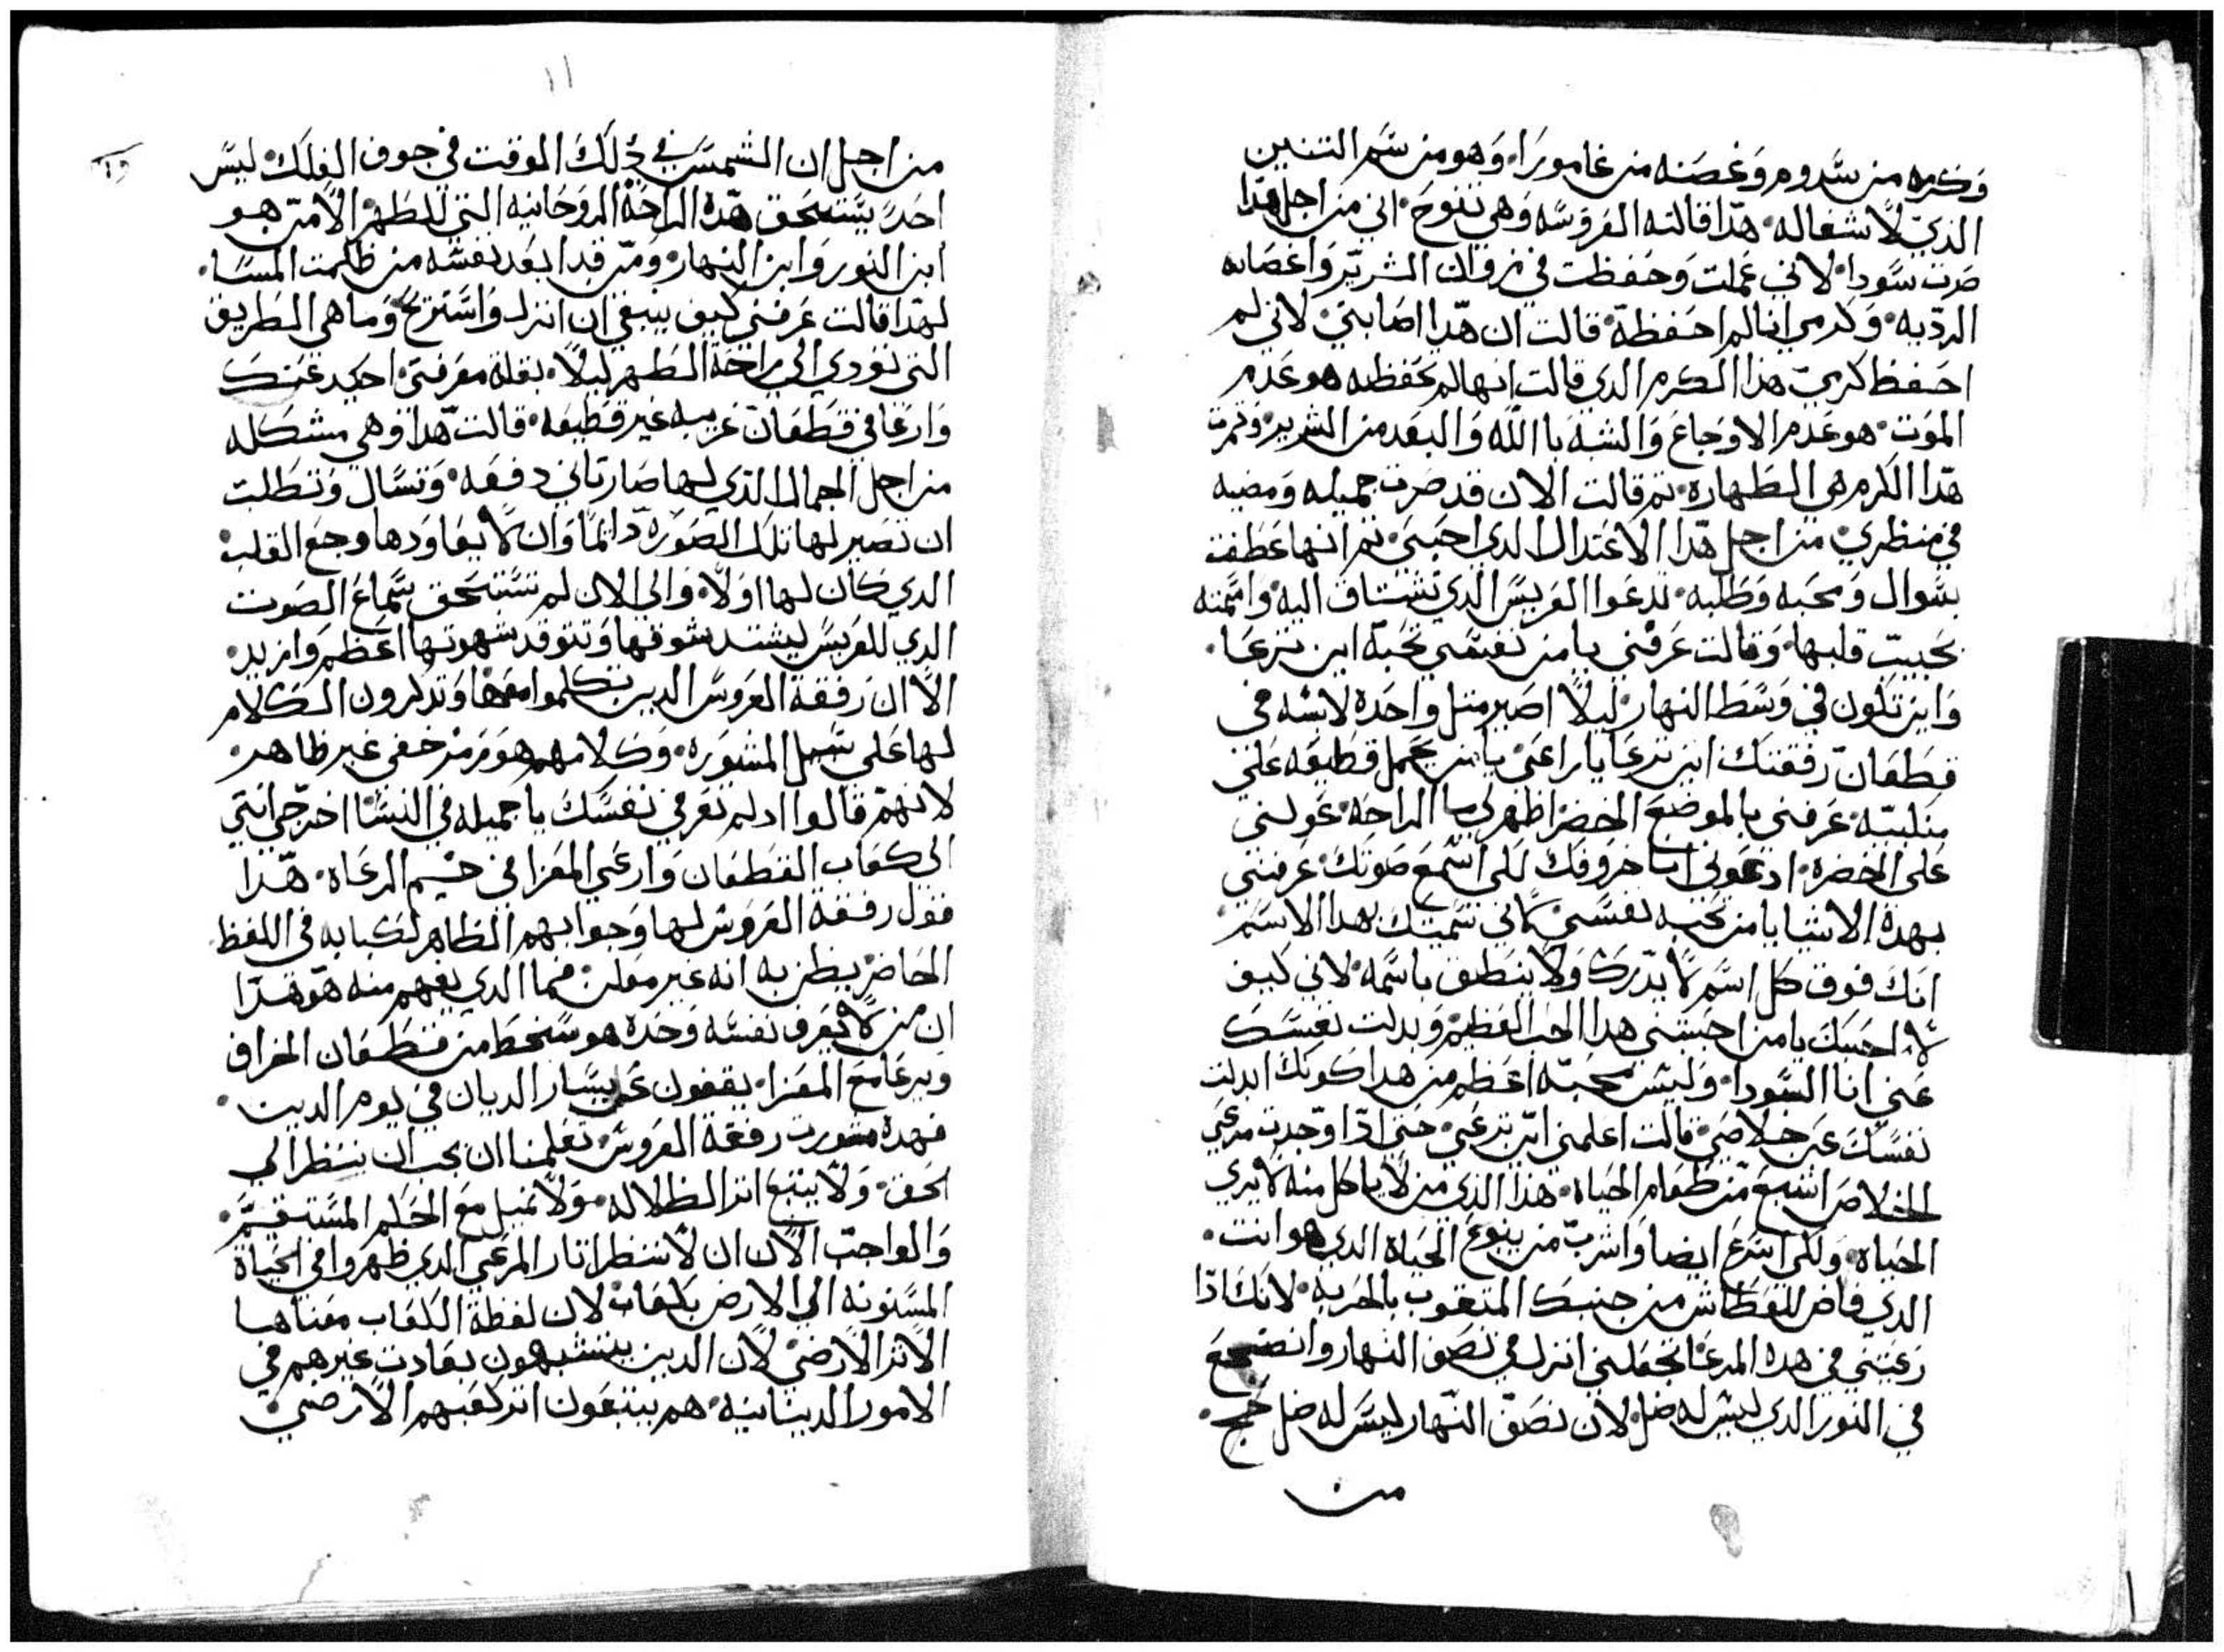 وكرمه من سدوم وغصنه من غامورا. وهو من سم التنين
الذي لا شفا له. هذا قالته العروسه وهي تنوح. اني من اجل هذا
صرت سودا. لاني عملت وحفظت في زوان الشرير واغصانه
الرديه. وكرمي انا لم احفظة. قالت ان هذا اصابني. لاني لم
احفظ كرمي هذا الكرم الدي قالت انها لم تحفظه هو عدم
الموت. هو عدم الاوجاع والشبه باالله والبعد من الشرير. وثمرت
هذا الكرم هي الطهاره. تم قالت الان قد صرت جميله ومضيه
في منظري. من اجل هذا الاعتدال الدي احبني. تم انها عطفت
بسوال ومحبه وطلبه. تدعوا العريس الدي تشتاق اليه. واسمته
بحبيب قلبها. وقالت عرفني يا من نفسي تحبة اين ترعا.
واين تكون في وسط النهار. ليلا اصير متل واحده لابسه في
قطعان رفقتك اين ترعا يا راعي يا من يحمل قطيعه علي
منكبيه. عرفني بالموضع الخضرا اظهر لي ما الراحه. عولني
علي الخضره. ادعوني انا خروفك لكي اسمع صوتك. عرفني
بهده الاشيا يا من تحبه نفسي. لاني سميتك بهدا الاسم
انك فوق كل اسم لا يدرك ولا ينطق باسمه. لاني كيف
لا احبك يا من احبتني هدا الحب العظيم. وبدلت نفسك
عني انا السودا. وليس محبه اعظم من هدا كونك ابدلت
نفسك عن خلاصي. قالت اعلمني اين ترعي. حتي ادا وجدت مرعي
الخلاص اشبع من طعام الحياه. هذا الذي من لا ياكل منه لا يري
الحياه. ولكي اسرع ايضا واشرب من ينبوع الحياه الدي هو انت.
الدي فاض للعطاش من جنبك المتقوب بالحربه. لانك ادا
رعيتني في هده المرعا تجعلني انزل في نصف النهار وانضجع
في النور الدي ليس له ضل. لان نصف النهار ليس له ضل
من
١١
من اجل ان الشمس في دلك الوقت في جوف الفلك. ليس
احد يستحق هده الراحة الروحانيه التي للظهر الا من هو
ابن النور وابن النهار. ومن قد ابعد نفسه من ظلمت المسا.
لهدا قالت عرفني كيف ينبغي ان انزل واستريح وما هي الطريق
التي تودي الي راحة الظهر ليلا. بقلة معرفتي احيد عنك
وارعا في قطعان غريبه غير قطيعه. قالت هدا وهي مشكله
من اجل الجمال الذي لها صار تاني دفعه. وتسال وتطلب
ان تصير لها تلك الصوره دائما وان لا يعاودها وجع القلب.
الدي كان لها اولا. والي الان لم تستحق سماع الصوت
الدي للعريس ليشتد شوقها وتتوقد شهوتها اعظم وازيد.
الا ان رفقة العروس الدين تكلموا معها وتدكرون الكلام
لها علي سبيل المشوره. وكلامهم هو رمز خفي غير ظاهر.
لانهم قالوا اد لم تعرفي نفسك يا جميله في النسا اخرجي انتي
الي كعاب القطعان وارعي المعزا في خيم الرعاه. هدا
قول رفقة العروس لها وجوابهم الظاهر لكتابه في اللفظ
الحاضر يظن به انه غير معلن. فما الدي يفهم منه هو هدا
ان من لا يعرف نفسه وحده هو سخط من قطعان الخراف
ويرعا مع المعزا. يقفون علي يسار الديان في يوم الدين.
فهده مشورت رفقة العروس تعلمنا ان يجب ان ننظر الي
الحق. ولا يتبع اتر الظلاله. ولا نميل مع الحكم المستقيم.
والواجب الان ان لا ننظر اتار المرعي الدي ظهروا في الحياة
المسنونه الي الارض بكعاب لان لفظة الكعاب معناها
الاتر الارضي. لان الدين يتشبهون بعادت غيرهم في
الامور الدينانيه. هم يتبعون اتر كعبهم الارضي.